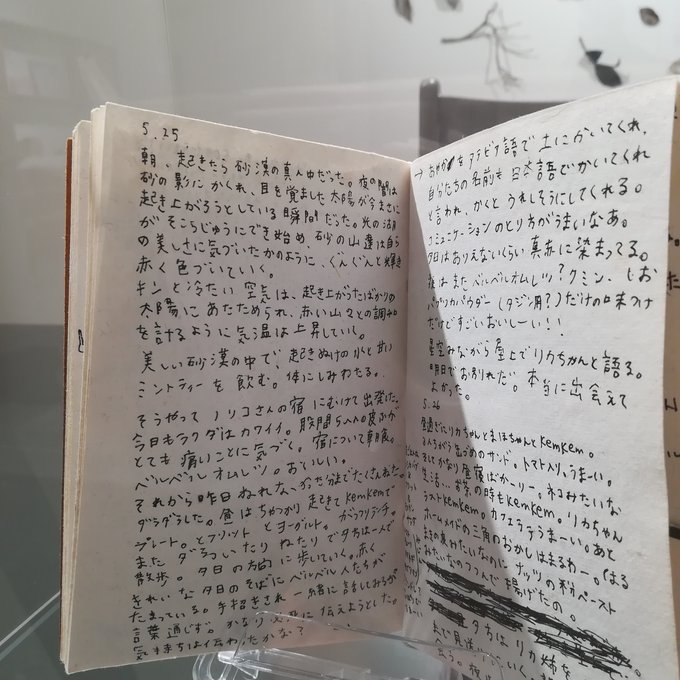 5.25
朝、起きたら砂漠の真ん中だった。夜の間は
砂の影にかくれ、目を覚ました太陽が今まさに
起き上がろうとしている瞬間だった。光の
がそこらじゅうにでき始め、砂の山達は自ら
の美しさに気づいたかのように、ぐんぐんと
赤く色づいていく。
キンと冷たい空気は、起き上がったばかりの
太陽にあたためられ、赤い山々との調和
を計るように気温は上昇していく。
美しい砂漠の中で、起きぬけの水と甘い
ミントティーを飲む。体にしみわたる。
そうやってノリコさんの宿にむけて出発した。
今日もラクダはカワイイ。股間
とても痛いことに気づく。宿について朝食。
ベルベルオムレツ。おいしい。
それから昨日ねれなかった分達でたくさんねた。
ダラダラした。昼はちかつり起きてKemKemで
プレート。とフリットとヨーグルト。がっつりランチ。
またダラついたりねたりで夕方は一人で
散歩。夕日の方向に歩いていく。赤く
きれいな夕日のそばにベルベル人たちが
たまっている。手招きされ一緒に話してみるが
言葉通じず。かなり必死に伝えようとした。
気持ちは伝わったかな？
→おめかをアラビア語で土にかいてくれ、
自分たちの名前も日本語でかいてくれ
と言われ、かくとうれしそうにしてくれる。
コミュニケーションのとり方がうまいなあ。
夕日はありえないくらい真赤に染まってる。
夜はまたベルベルオムレツ？クミン、しお
パプリカパウダー（タジン用？）だけの味つけ
だけどすごいおいしーい！！
星空みながら屋上でリカちゃんと語る。
明日でお別れだ。本当に出会えて
よかった。
5.26
昼過ぎにリカちゃんとまほちゃんとKemKem。
のサンド。トマト入り。うまーい。
そしてかなり昼寝ばかーりー。ネコみたいな
生活ー。お茶の時もKemKem。リカちゃん
ラストKemKem。カフェラテうまーい。あと
ホームメイドの三角のおかしはまるわー。はる
まきの具みたいなのにナッツの粉ペースト
みたいなのつつんで揚げたの。
夕方はリカ姉を
見送りにいく。